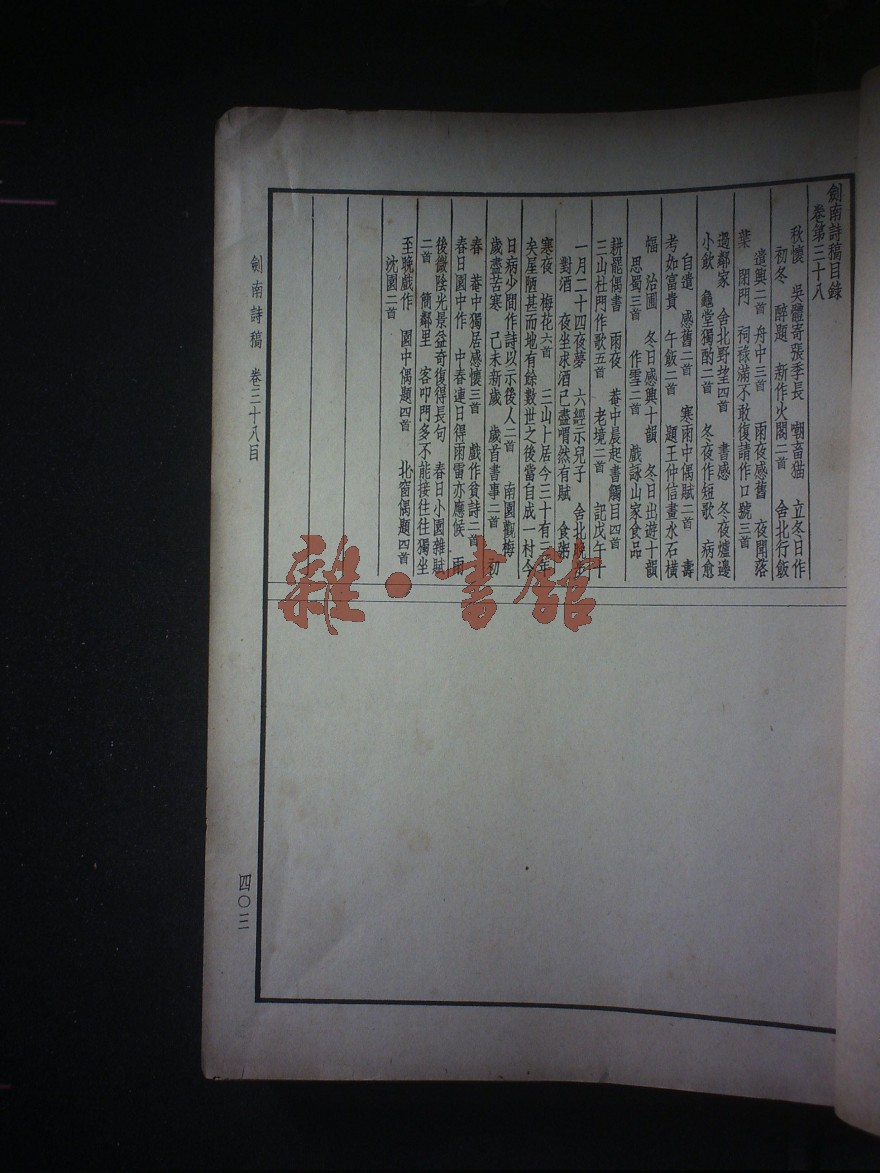 劍南詩稿目錄
卷第三十八
秋懷 吳體寄張季長 嘲畜猫 立冬日作
初冬 醉題 新作火閣二首 舍北行飯
遣興二首 舟中三首 雨夜感舊 夜聞落
葉 閉門 祠祿滿不敢復請作口號三首
過鄰家 舍北野望四首 書感 冬夜爐邊
小飲 龜堂獨酌二首 冬夜作短歌 病愈
自遣 感舊二首 寒雨中偶賦二首 壽
考如富貴 午飯二首 題王仲信畫水石橫
幅 治圃 冬日感興十韻 冬日出遊十韻
思蜀三首 作雪二首 戲詠山家食品
耕罷偶書 雨夜 菴中晨起書觸目四首
三山杜門作歌五首 老境二首 記戊午十
一月二十四夜夢 六經示兒子 舍北晚步
對酒 夜坐求酒已盡喟然有賦 食粥
寒夜 梅花六首 三山卜居今三十有三年
矣屋陋甚而地有餘數世之後當自成一村今
日病少間作詩以示後人二首 南園觀梅
歲盡苦寒 己未新歲 歲首書事二首 初
春 菴中獨居感懷三首 戲作貧詩二首
春日園中作 中春連日得雨雷亦應候 雨
後微陰光景益奇復得長句 春日小園雜賦
二首 簡鄰里 客叩門多不能接往往獨坐
至晚戲作 園中偶題四首 北窗偶題四首
沈園二首
劍南詩稿 卷三十八目
四〇三
雜·書館